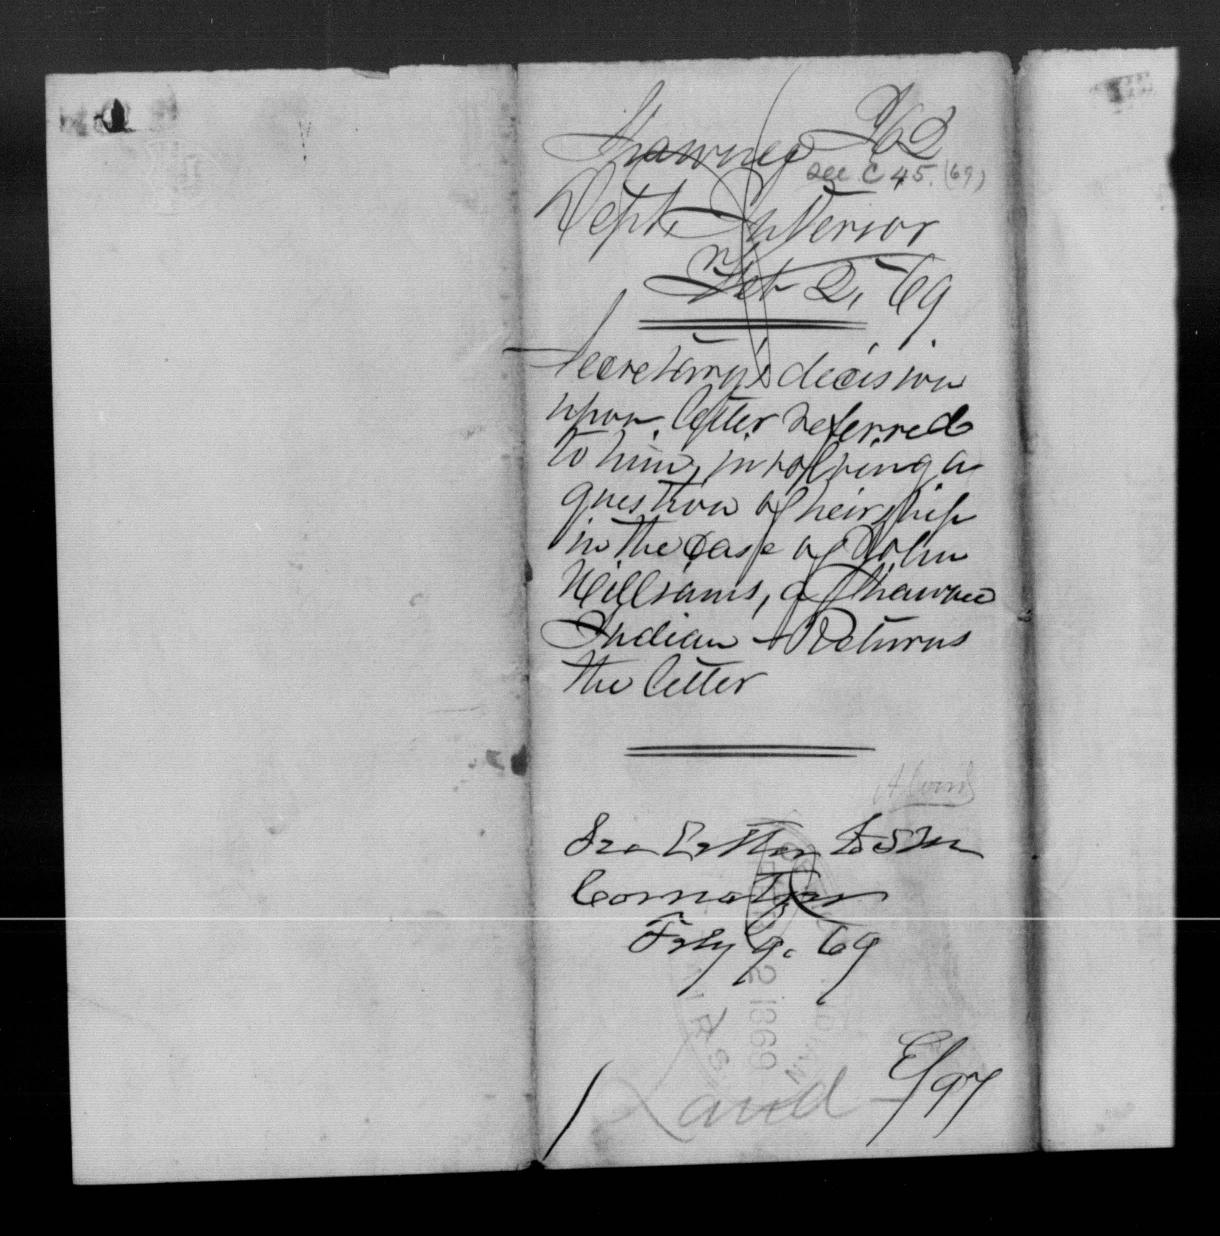 Shawnee I62
see C 45. (69)
Dept. Interior
Feb 2, 69
Secretary's decision
upon letter referred
to him, involving a
question of heirship
in the case of John
Williams, a Shawnee
Indian & Returns
the letter
See Letter to
Feby 9. 69
2 1869
Land
E/97